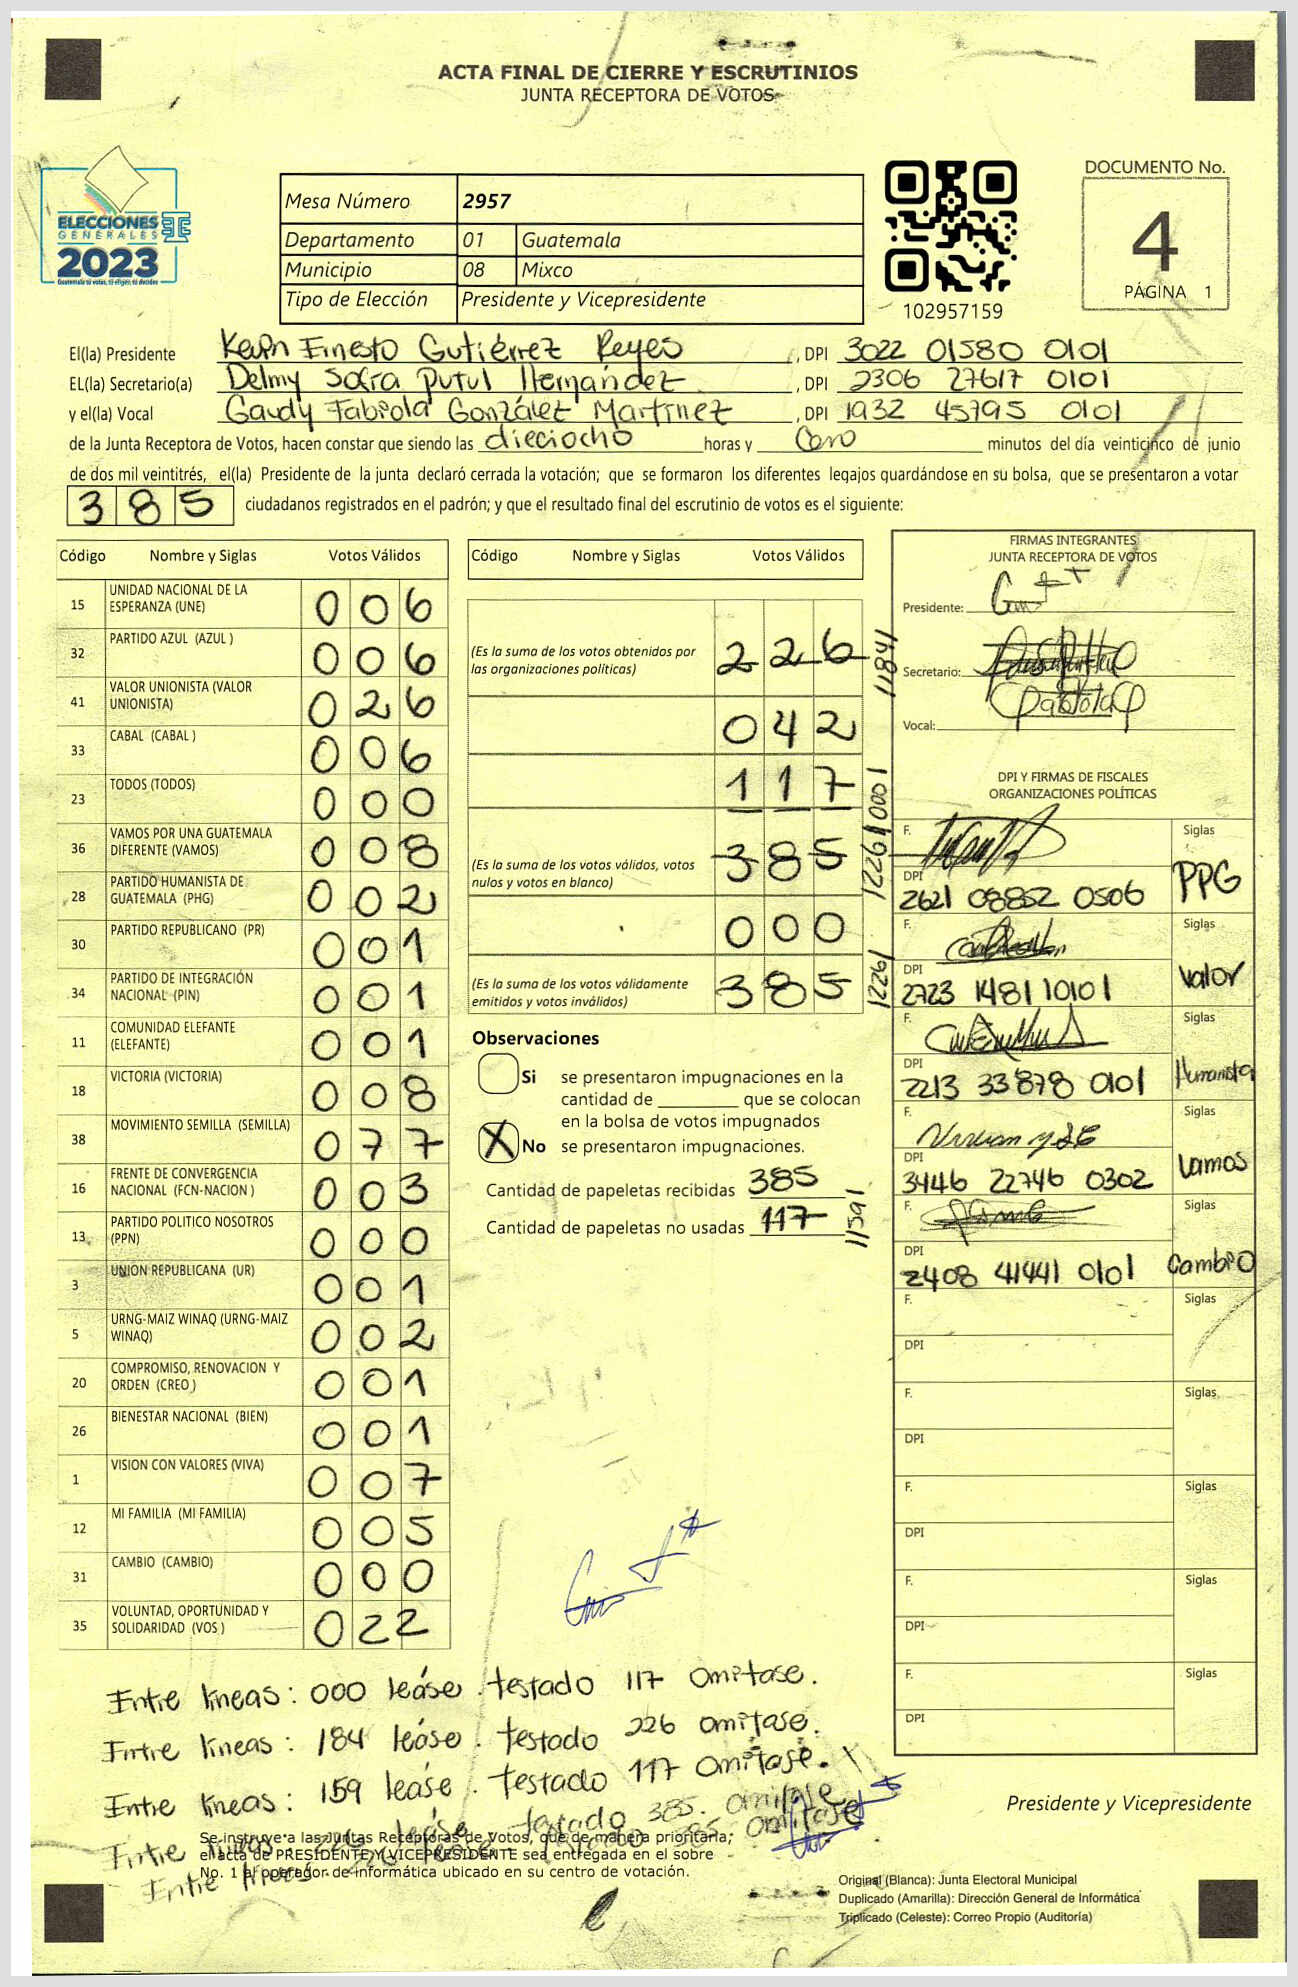 ACTA FINAL DE CIERRE Y ESCRUTINIOS
JUNTA RECEPTORA DE VOTOS
ELECCIONES
GENERALES
2023
Guatemala tú votas, tú eliges, tú decides
Mesa Número 2957
Departamento 01 Guatemala
Municipio 08 Mixco
Tipo de Elección Presidente y Vicepresidente
102957159
DOCUMENTO No.
4
PÁGINA 1
El(la) Presidente Kevin Ernesto Gutiérrez Reyes, DPI 3022 01580 0101
EL(la) Secretario(a) Delmy Putul Hernández, DPI 2306 27617 0101
y el(la) Vocal Gaudy Fabiola González Martínez, DPI 1932 45795 0101
de la Junta Receptora de Votos, hacen constar que siendo las dieciocho horas y Cero minutos del día veinticinco de junio
de dos mil veintitrés, el(la) Presidente de la junta declaró cerrada la votación; que se formaron los diferentes legajos guardándose en su bolsa, que se presentaron a votar
385 ciudadanos registrados en el padrón; y que el resultado final del escrutinio de votos es el siguiente:
Código Nombre y Siglas Votos Válidos
15 UNIDAD NACIONAL DE LA ESPERANZA (UNE) 006
32 PARTIDO AZUL (AZUL ) 006
41 VALOR UNIONISTA (VALOR UNIONISTA) 026
33 CABAL (CABAL ) 006
23 TODOS (TODOS) 000
36 VAMOS POR UNA GUATEMALA DIFERENTE (VAMOS) 008
28 PARTIDO HUMANISTA DE GUATEMALA (PHG) 002
30 PARTIDO REPUBLICANO (PR) 001
34 PARTIDO DE INTEGRACIÓN NACIONAL (PIN) 001
11 COMUNIDAD ELEFANTE (ELEFANTE) 001
18 VICTORIA (VICTORIA) 008
38 MOVIMIENTO SEMILLA (SEMILLA) 077
16 FRENTE DE CONVERGENCIA NACIONAL (FCN-NACION ) 003
13 PARTIDO POLITICO NOSOTROS (PPN) 000
3 UNION REPUBLICANA (UR) 001
5 URNG-MAIZ WINAQ (URNG-MAIZ WINAQ) 002
20 COMPROMISO, RENOVACION Y ORDEN (CREO ) 001
26 BIENESTAR NACIONAL (BIEN) 001
1 VISION CON VALORES (VIVA) 007
12 MI FAMILIA (MI FAMILIA) 005
31 CAMBIO (CAMBIO) 000
35 VOLUNTAD, OPORTUNIDAD Y SOLIDARIDAD (VOS ) 022
Código Nombre y Siglas Votos Válidos
(Es la suma de los votos obtenidos por las organizaciones políticas) 226 11841
042
117 10001
(Es la suma de los votos válidos, votos nulos y votos en blanco) 385 12261
000
(Es la suma de los votos válidamente emitidos y votos inválidos) 385 12261
Observaciones
Si se presentaron impugnaciones en la
cantidad de ________ que se colocan
en la bolsa de votos impugnados
X No se presentaron impugnaciones.
Cantidad de papeletas recibidas 385
Cantidad de papeletas no usadas 117 11591
FIRMAS INTEGRANTES
JUNTA RECEPTORA DE VOTOS
Presidente:
Secretario:
Vocal:
DPI Y FIRMAS DE FISCALES
ORGANIZACIONES POLÍTICAS
F. Siglas
DPI 2621 08852 0506 PPG
F. Siglas
DPI 2723 14811 0101 Valor
F. Siglas
DPI 2213 33878 0101 Humanista
F. Siglas
DPI 3446 22746 0302 Vamos
F. Siglas
DPI 2408 41441 0101 Cambio
F. Siglas
DPI
F. Siglas
DPI
F. Siglas
DPI
F. Siglas
DPI
F. Siglas
DPI
Entre líneas: 000 léase. testado 117 omítase.
Entre líneas: 184 léase. testado 226 omítase.
Entre líneas: 159 léase. testado 117 omítase.
Entre líneas léase testado 385. omítase
Entre líneas léase testado 385 omítase
Se instruye a las Juntas Receptoras de Votos, que de manera prioritaria,
el acta de PRESIDENTE Y VICEPRESIDENTE sea entregada en el sobre
No. 1 al operador de informática ubicado en su centro de votación.
Presidente y Vicepresidente
Original (Blanca): Junta Electoral Municipal
Duplicado (Amarilla): Dirección General de Informática
Triplicado (Celeste): Correo Propio (Auditoría)